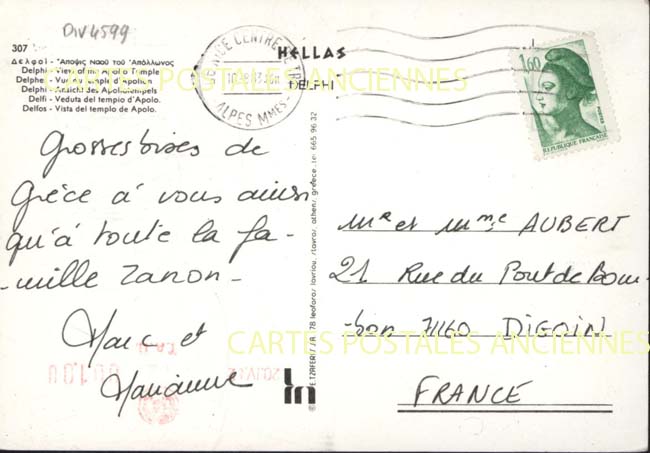 Div 4599
307
Δελφοί - Ἄποψις Ναοῦ τοῦ Ἀπόλλωνος
Delphi - View of the Apollo Temple
Delphe - Vue du temple d'Apollon
Delphi - Ansicht des Apollotempels
Delfi - Veduta del tempio d'Apolo.
Delfos - Vista del templo de Apolo.
HELLAS
DELPHI
NICE CENTRE DE TRI
ALPES MMES
1,60
POSTES
REPUBLIQUE FRANÇAISE
CARTES POSTALES ANCIENNES
Grosses bises de
Grèce à vous ainsi
qu'à toute la fa-
-mille Zanon-
Marc et
Marianne
Mr et Mme AUBERT
21 Rue du Pont de Bour-
-bon 71160 DIGOIN
FRANCE
CARTES POSTALES ANCIENNES
© E.TZAFERIS S.A. 78 leoforos lavriou, stavros, athens greece. tel 665 96 32